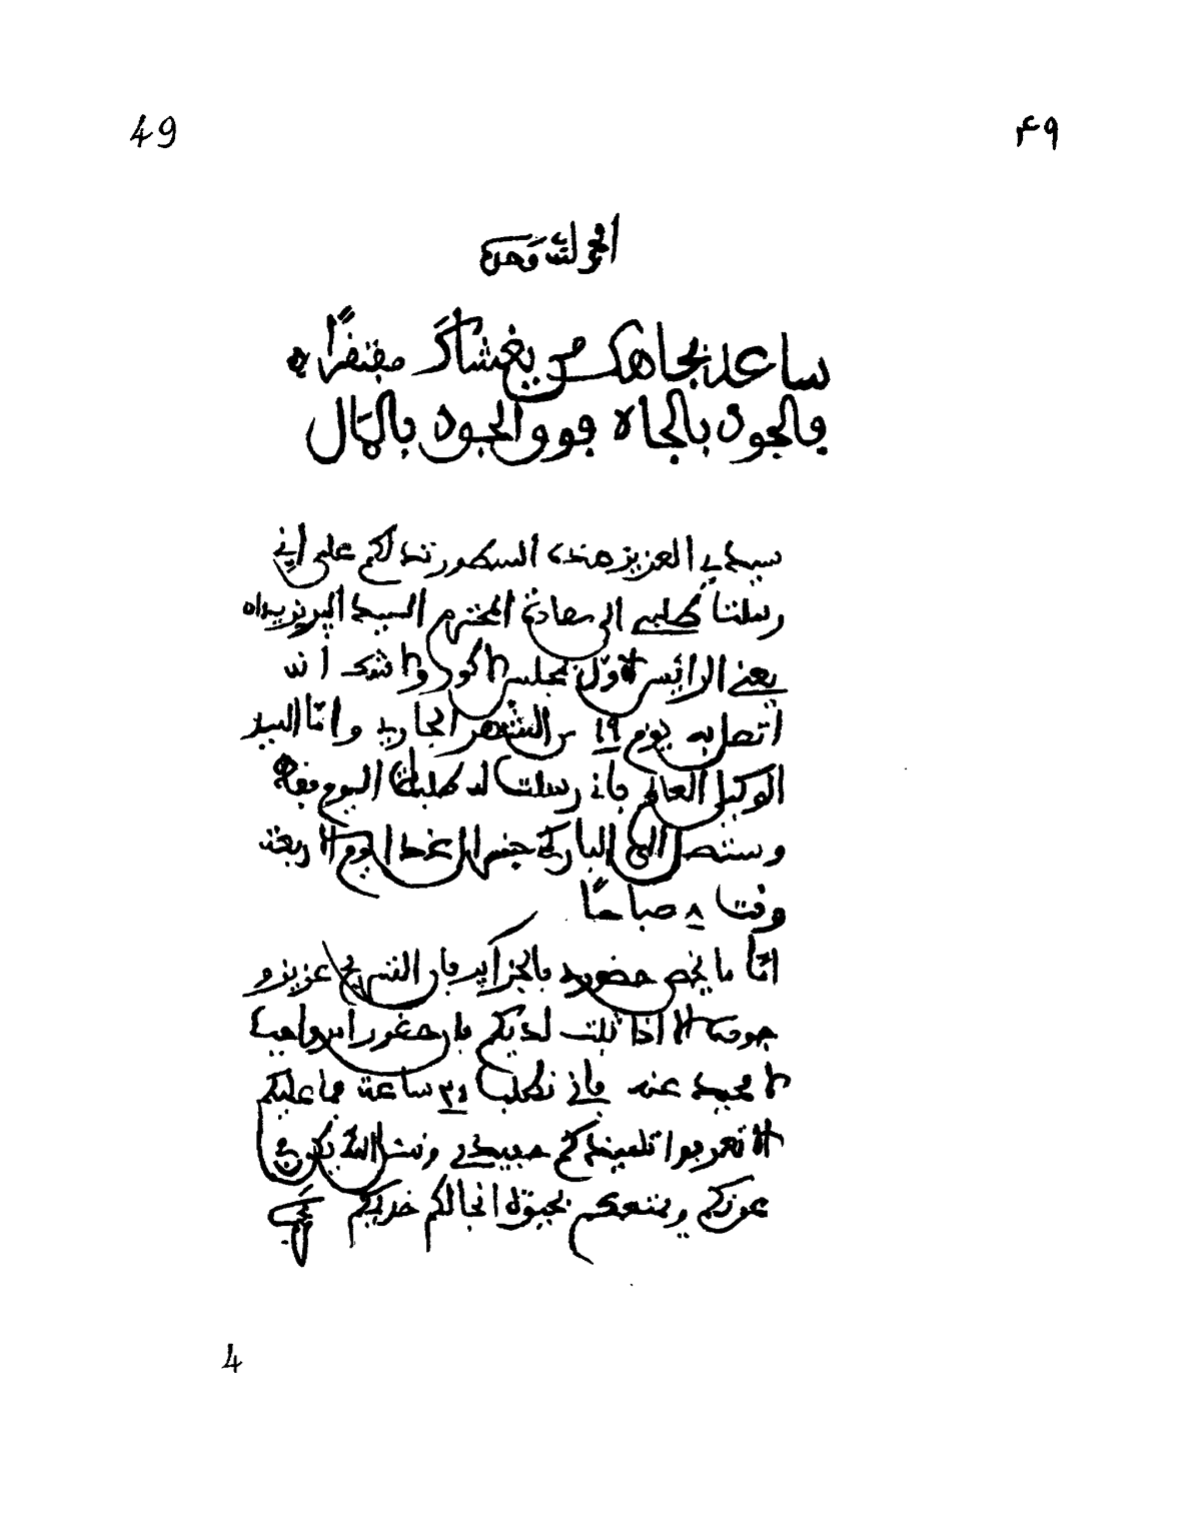 49
۴۹
الحمد لله وحده
ساعد بجاهك من يغشاك مفتقرا
فالجود بالجاه فوق الجود بالمال
سيدي العزيز هذه السطور تدلكم على اني
رسلنا طلبي الى سعادة المحترم السيد البريزيدان
يعني الرائس الاول لمجلس لاكور ولا شك انه
اتصل به يوم ١٩ من الشهر الجاري وامّا السيد
الوكيل العام فاني رسلت له طلبا اليوم
وستتصل الى الباركي جنرال غدا يوم الاربعة
وقت ٨ صباحًا
امّا ما يخص حضوري بالجزاير فان الشريح عزيز و
اذا ثبت لديكم بان حضوري امر واجب
لا محيد عنه فاني نطلب ٢٤ ساعة فما عليكم
الا تعرفوا تلميذكم حبيبي ونسئل الله يكون في
عونكم ويمتعكم بحيوة انجالكم خديمكم
4